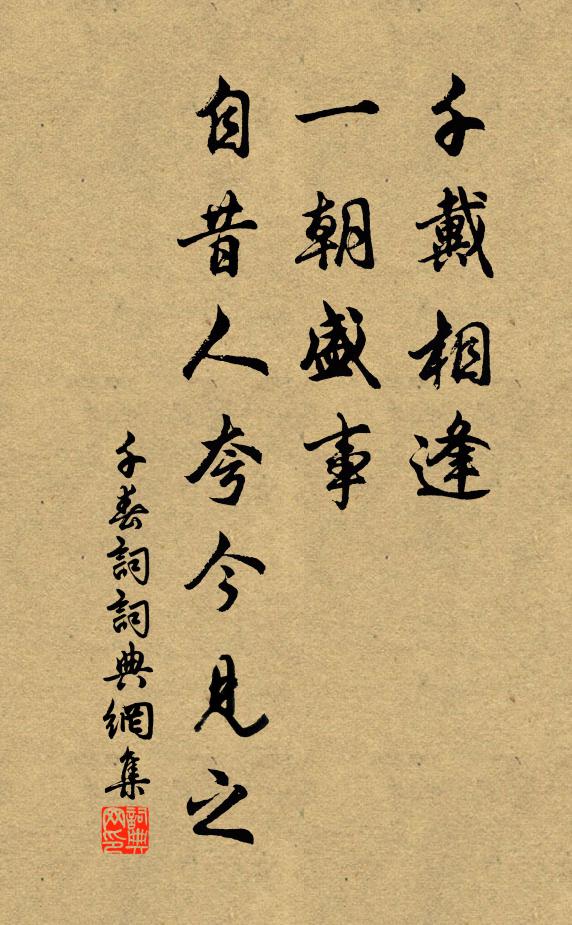 千戴相逢
一朝盛事
自昔人夸今見之
千春詞詞典網集
詞典
网印